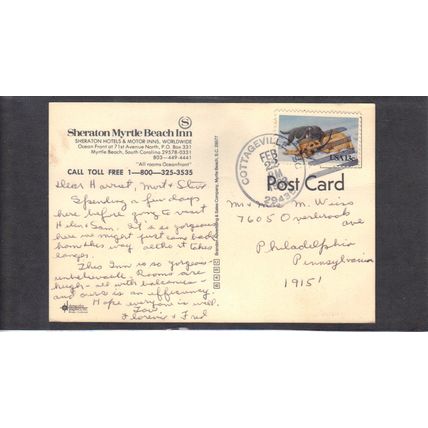 S
Sheraton Myrtle Beach Inn
SHERATON HOTELS & MOTOR INNS, WORLDWIDE
Ocean Front at 71st Avenue North, P.O. Box 331
Myrtle Beach, South Carolina 29578-0331
803—449-4441
"All rooms Oceanfront"
CALL TOLL FREE 1—800—325-3535
Dear Harriet, Mort & Steve
Spending a few days
here before going to visit
Helen & Sam. It's so gorgeous
here we might just come back
from this way, altho it takes
longer.
This Inn is so gorgeous-
unbelievable. Rooms are
hugh - all with balconies -
and ours is an efficiency.
Hope everyone is well.
Love
Florence & Fred
COTTAGEVILLE
FEB
PM
USA 13c
Post Card
Mr & Mrs. M. Weiss
7605 Overbrook
ave
Philadelphia
Pennsylvania
19151